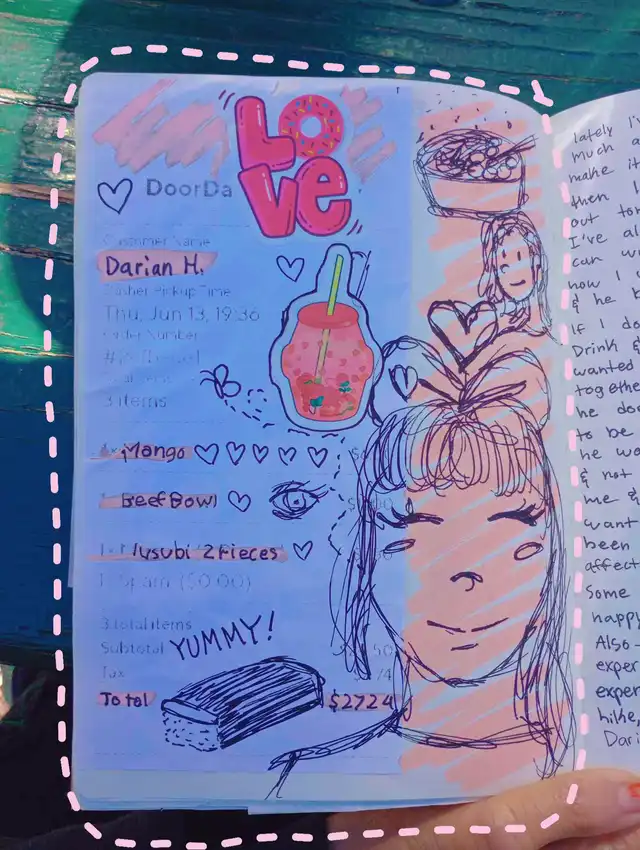 LOVE
DoorDa
Customer Name
Darian H.
Dasher Pickup Time
Thu, Jun 13, 19:36
Order Number
3 items
Mango
Beef Bowl
Musubi 2 Pieces
Spam ($0.00)
3 total items
Subtotal
YUMMY!
Tax
Total $27.24
lately I'v
much a
make it
then
out
I've al
can w
now I
& he
If I do
Drink &
wanted
togethe
he do
to be
he wa
& not
me &
want
been
affect
some
happy
Also-
exper
exper
hike,
Dari